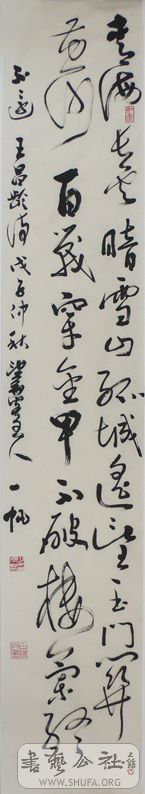 青海长云暗雪山孤城遥望玉门关
黄沙百战穿金甲不破楼兰终
不还 王昌龄诗 戊子仲秋 主人 一帆
書藝公社
WWW.SHUFA.ORG